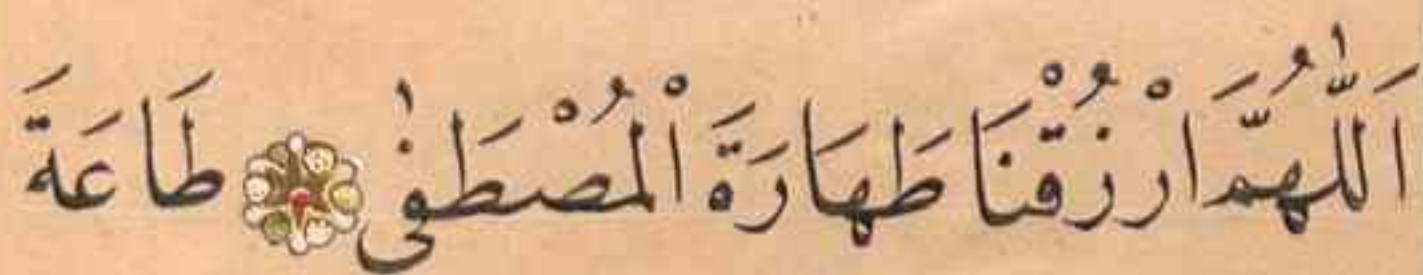 اَللّٰهُمَّ ارْزُقْنَا طَهَارَةَ الْمُصْطَفٰى طَاعَةَ